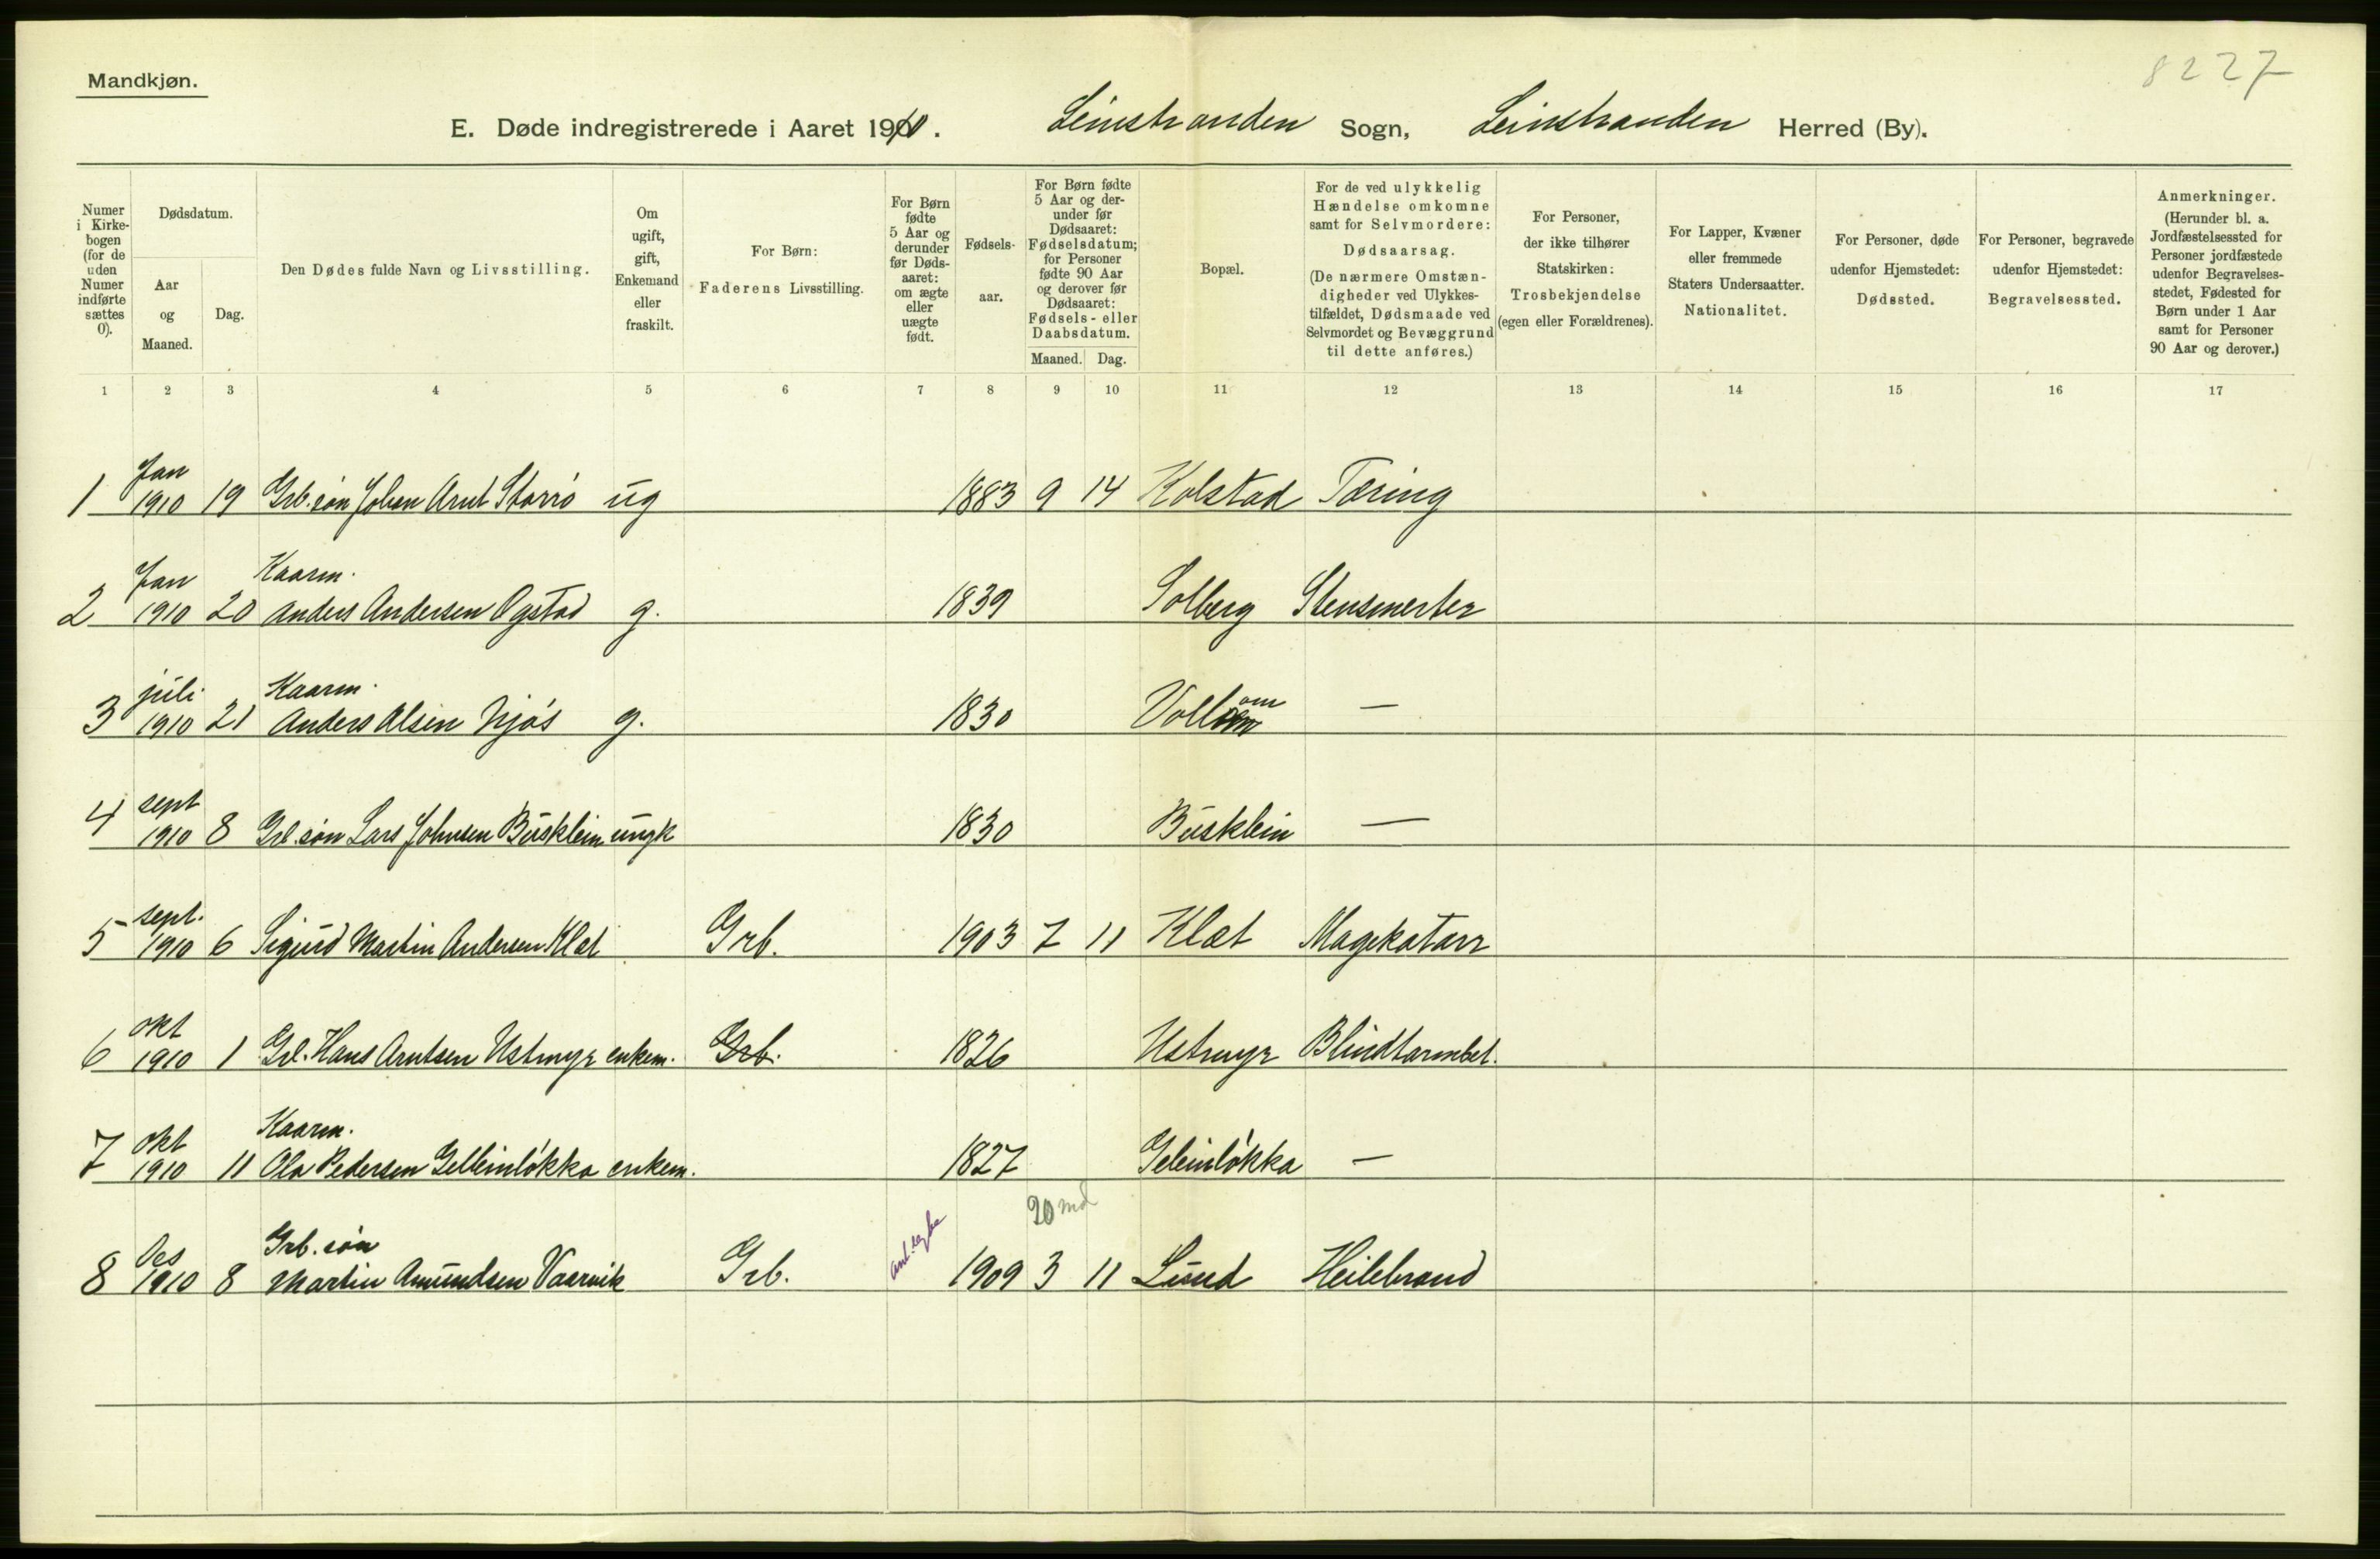 Mandkjøn.
8227
E. Døde indregistrerede i Aaret 1910. Leinstranden Sogn, Leinstranden Herred (By).
Numer i Kirkebogen (for de uden Numer indførte sættes 0).
Dødsdatum.
Aar og Maaned.
Dag.
Den Dødes fulde Navn og Livsstilling.
Om ugift, gift, Enkemand eller fraskilt.
For Børn: Faderens Livsstilling.
For Børn fødte 5 Aar og derunder før Dødsaaret: om ægte eller uægte født.
Fødselsaar.
For Børn fødte 5 Aar og derunder før Dødsaaret: Fødselsdatum; for Personer fødte 90 Aar og derover før Dødsaaret: Fødsels- eller Daabsdatum.
Maaned. Dag.
Bopæl.
For de ved ulykkelig Hændelse omkomne samt for Selvmordere: Dødsaarsag. (De nærmere Omstændigheder ved Ulykkestilfældet, Dødsmaade ved Selvmordet og Bevæggrund til dette anføres.)
For Personer, der ikke tilhører Statskirken: Trosbekjendelse (egen eller Forældrenes).
For Lapper, Kvæner eller fremmede Staters Undersaatter. Nationalitet.
For Personer, døde udenfor Hjemstedet: Dødssted.
For Personer, begravede udenfor Hjemstedet: Begravelsessted.
Anmerkninger. (Herunder bl. a. Jordfæstelsessted for Personer jordfæstede udenfor Begravelsesstedet, Fødested for Børn under 1 Aar samt for Personer 90 Aar og derover.)
1 2 3 4 5 6 7 8 9 10 11 12 13 14 15 16 17
1 Jan 1910 19 Grb.søn Johan Arnt Storrø ug 1883 9 14 Kolstad Tæring
2 Jan 1910 20 Kaarm. Anders Andersen Ogstad g. 1839 Solberg Stensmerter
3 juli 1910 21 Kaarm. Anders Olsen Njøs g. 1830 Vollom —
4 sept 1910 8 Grb.søn Lars Johnsen Busklein ungk 1830 Busklein —
5 sept. 1910 6 Sigurd Martin Andersen Klæt Grb. 1903 7 11 Klæt Magekatarr
6 okt 1910 1 Grb. Hans Arntsen Ustmyr enkem. Grb. 1826 Ustmyr Blindtarmbet.
7 okt 1910 11 Kaarm. Ola Pedersen Gelleinløkka enkem. 1827 Geleinløkka —
20 md
8 Des 1910 8 Grb. søn Martin Amundsen Vaarvik Grb. ant. egte 1909 3 11 Lund Heilebrand